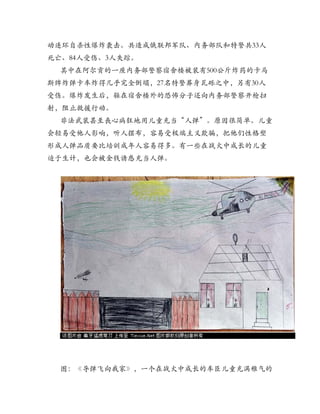 动连环自杀性爆炸袭击。共造成俄联邦军队、内务部队和特警共33人
死亡、84人受伤、3人失踪。
其中在阿尔贡的一座内务部警察宿舍楼被装有500公斤炸药的卡马
斯牌炸弹卡车炸得几乎完全倒塌，27名特警葬身瓦砾之中，另有30人
受伤。爆炸发生后，躲在宿舍楼外的恐怖分子还向内务部警察开枪扫
射，阻止救援行动。
非法武装甚至丧心病狂地用儿童充当“人弹”。原因很简单、儿童
会轻易受他人影响，听人摆布，容易受极端主义欺骗，把他们性格塑
形成人弹品质要比培训成年人容易得多。有一些在战火中成长的儿童
迫于生计，也会被金钱诱惑充当人弹。
上传至 Tiexue.Net 图片版权归原创者所有
图：《导弹飞向我家》，一个在战火中成长的车臣儿童充满稚气的